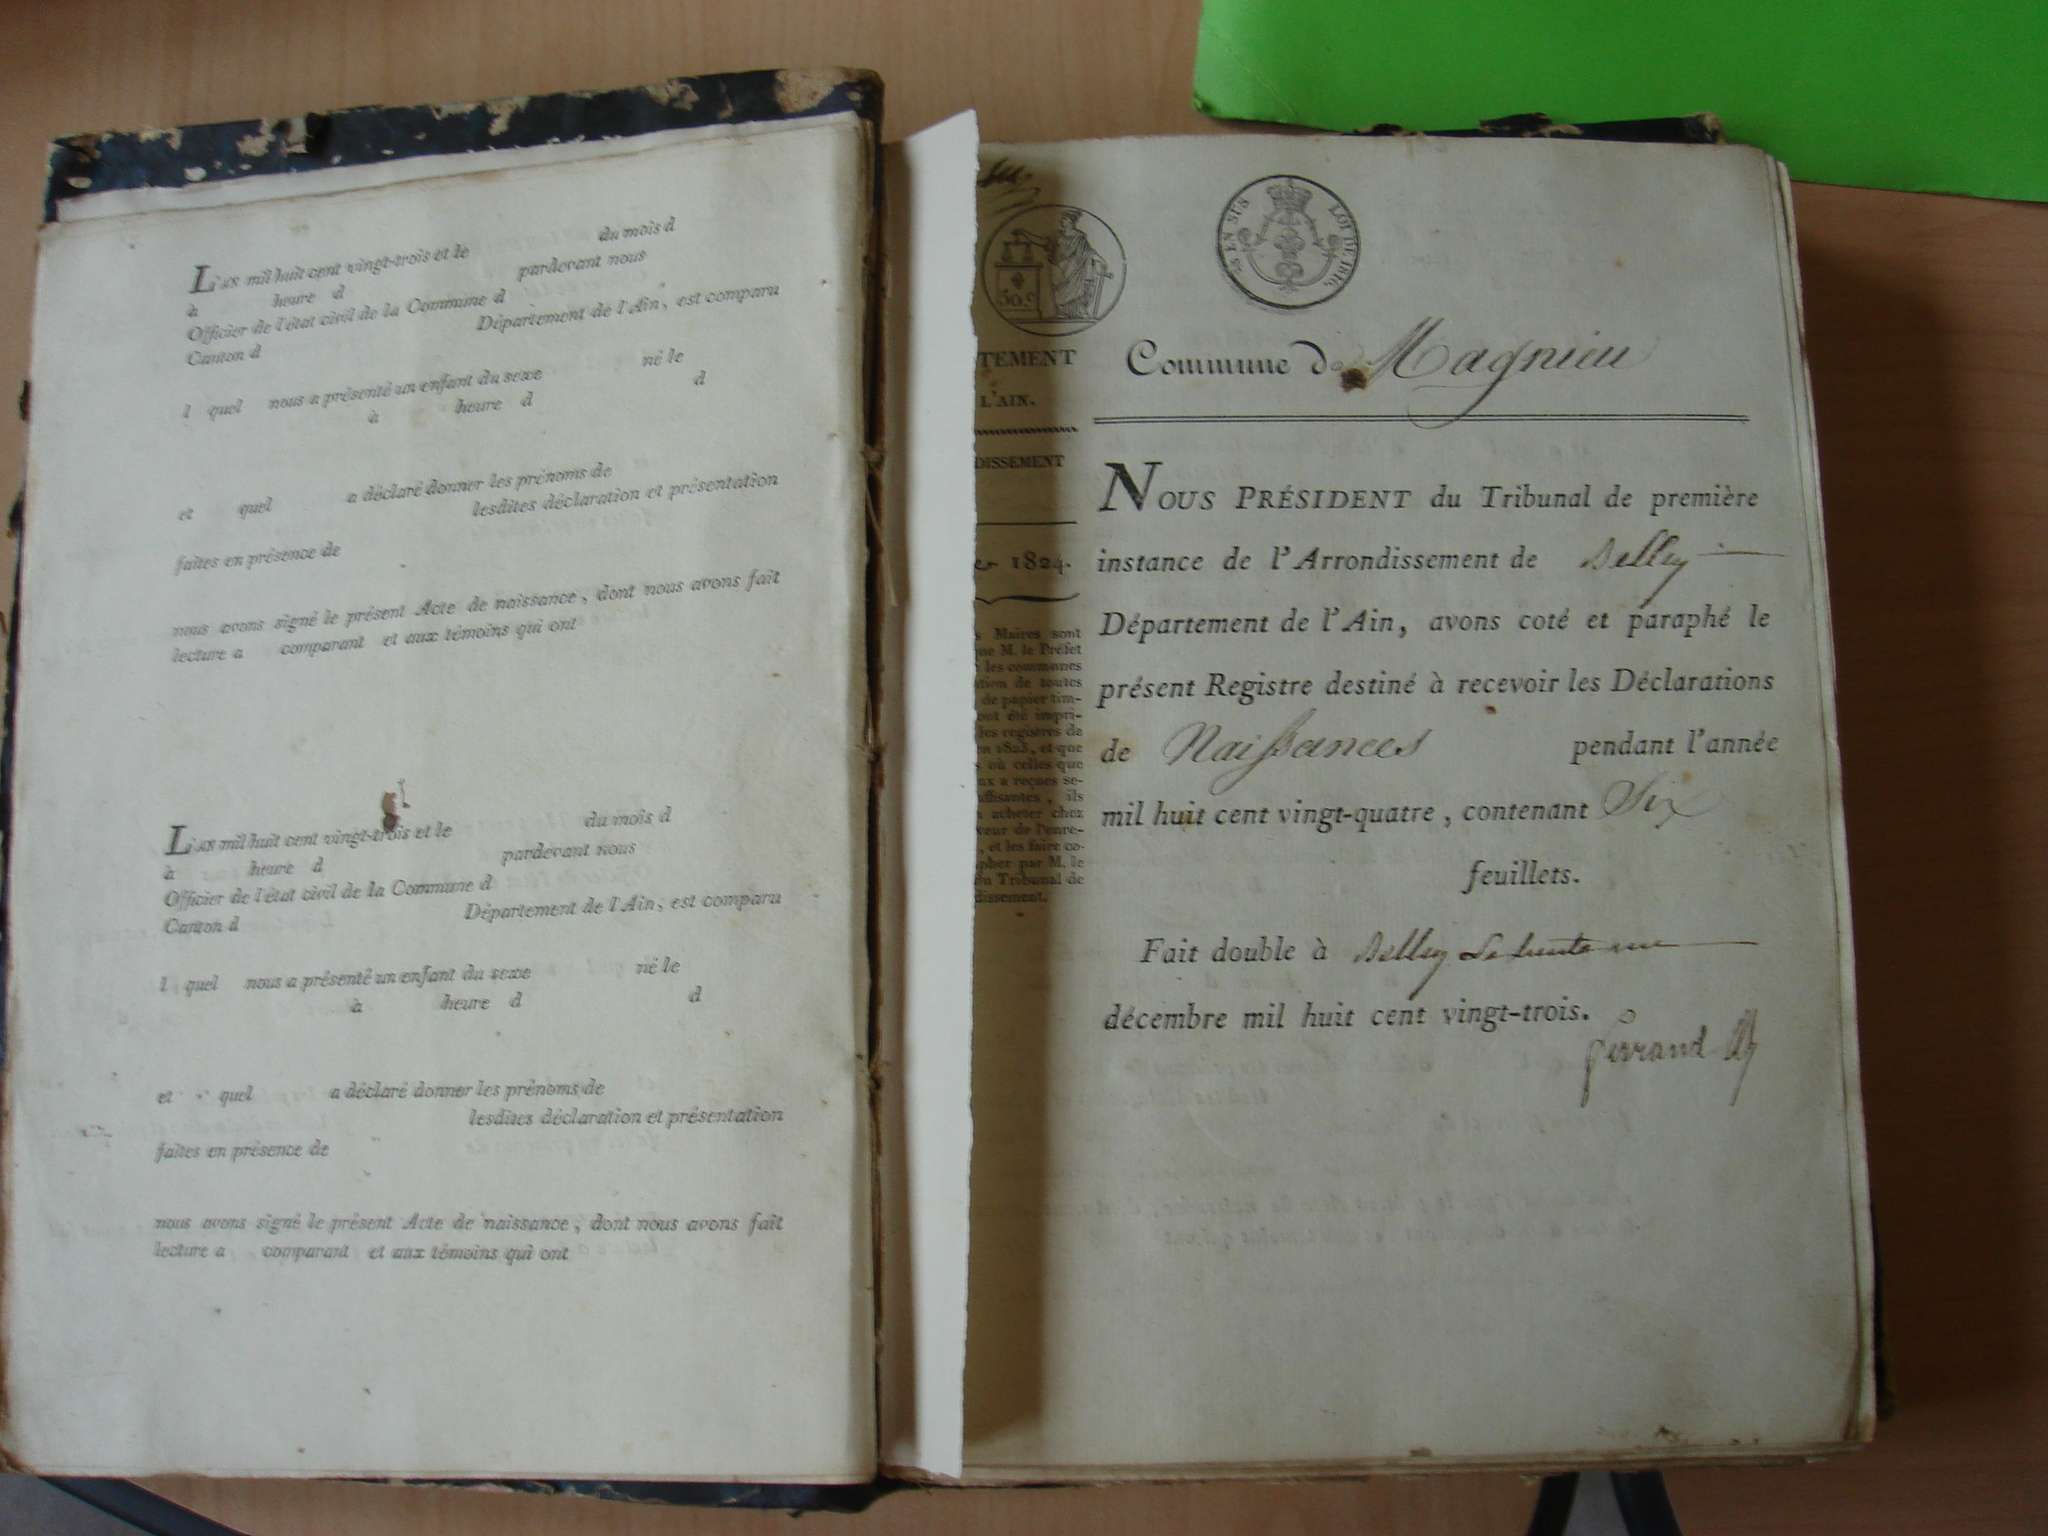 L'an mil huit cent vingt-trois et le du mois d
à heure d pardevant nous
Officier de l'état civil de la Commune d
Canton d Département de l'Ain, est comparu
l quel nous a présenté un enfant du sexe né le
à heure d d
et quel a déclaré donner les prénoms de
lesdites déclaration et présentation
faites en présence de
nous avons signé le présent Acte de naissance, dont nous avons fait
lecture a comparant et aux témoins qui ont
L'an mil huit cent vingt-trois et le du mois d
à heure d pardevant nous
Officier de l'état civil de la Commune d
Canton d Département de l'Ain, est comparu
l quel nous a présenté un enfant du sexe né le
à heure d d
et quel a déclaré donner les prénoms de
lesdites déclaration et présentation
faites en présence de
nous avons signé le présent Acte de naissance, dont nous avons fait
lecture a comparant et aux témoins qui ont
50.c
EN SUS LOI DE 1816
TEMENT
L'AIN.
DISSEMENT
1824.
s Maires sont
ue M. le Préfet
les communes
tion de toutes
de papier tim-
ont été impri-
les registres de
en 1823, et que
s où celles que
ux a reçues se-
uffisantes, ils
n acheter chez
veur de l'enre-
, et les faire co-
apher par M. le
du Tribunal de
dissement.
Commune de Magnieu
NOUS PRÉSIDENT du Tribunal de première
instance de l'Arrondissement de Belley
Département de l'Ain, avons coté et paraphé le
présent Registre destiné à recevoir les Déclarations
de Naissances pendant l'année
mil huit cent vingt-quatre, contenant Six
feuillets.
Fait double à Belley Le trente un
décembre mil huit cent vingt-trois.